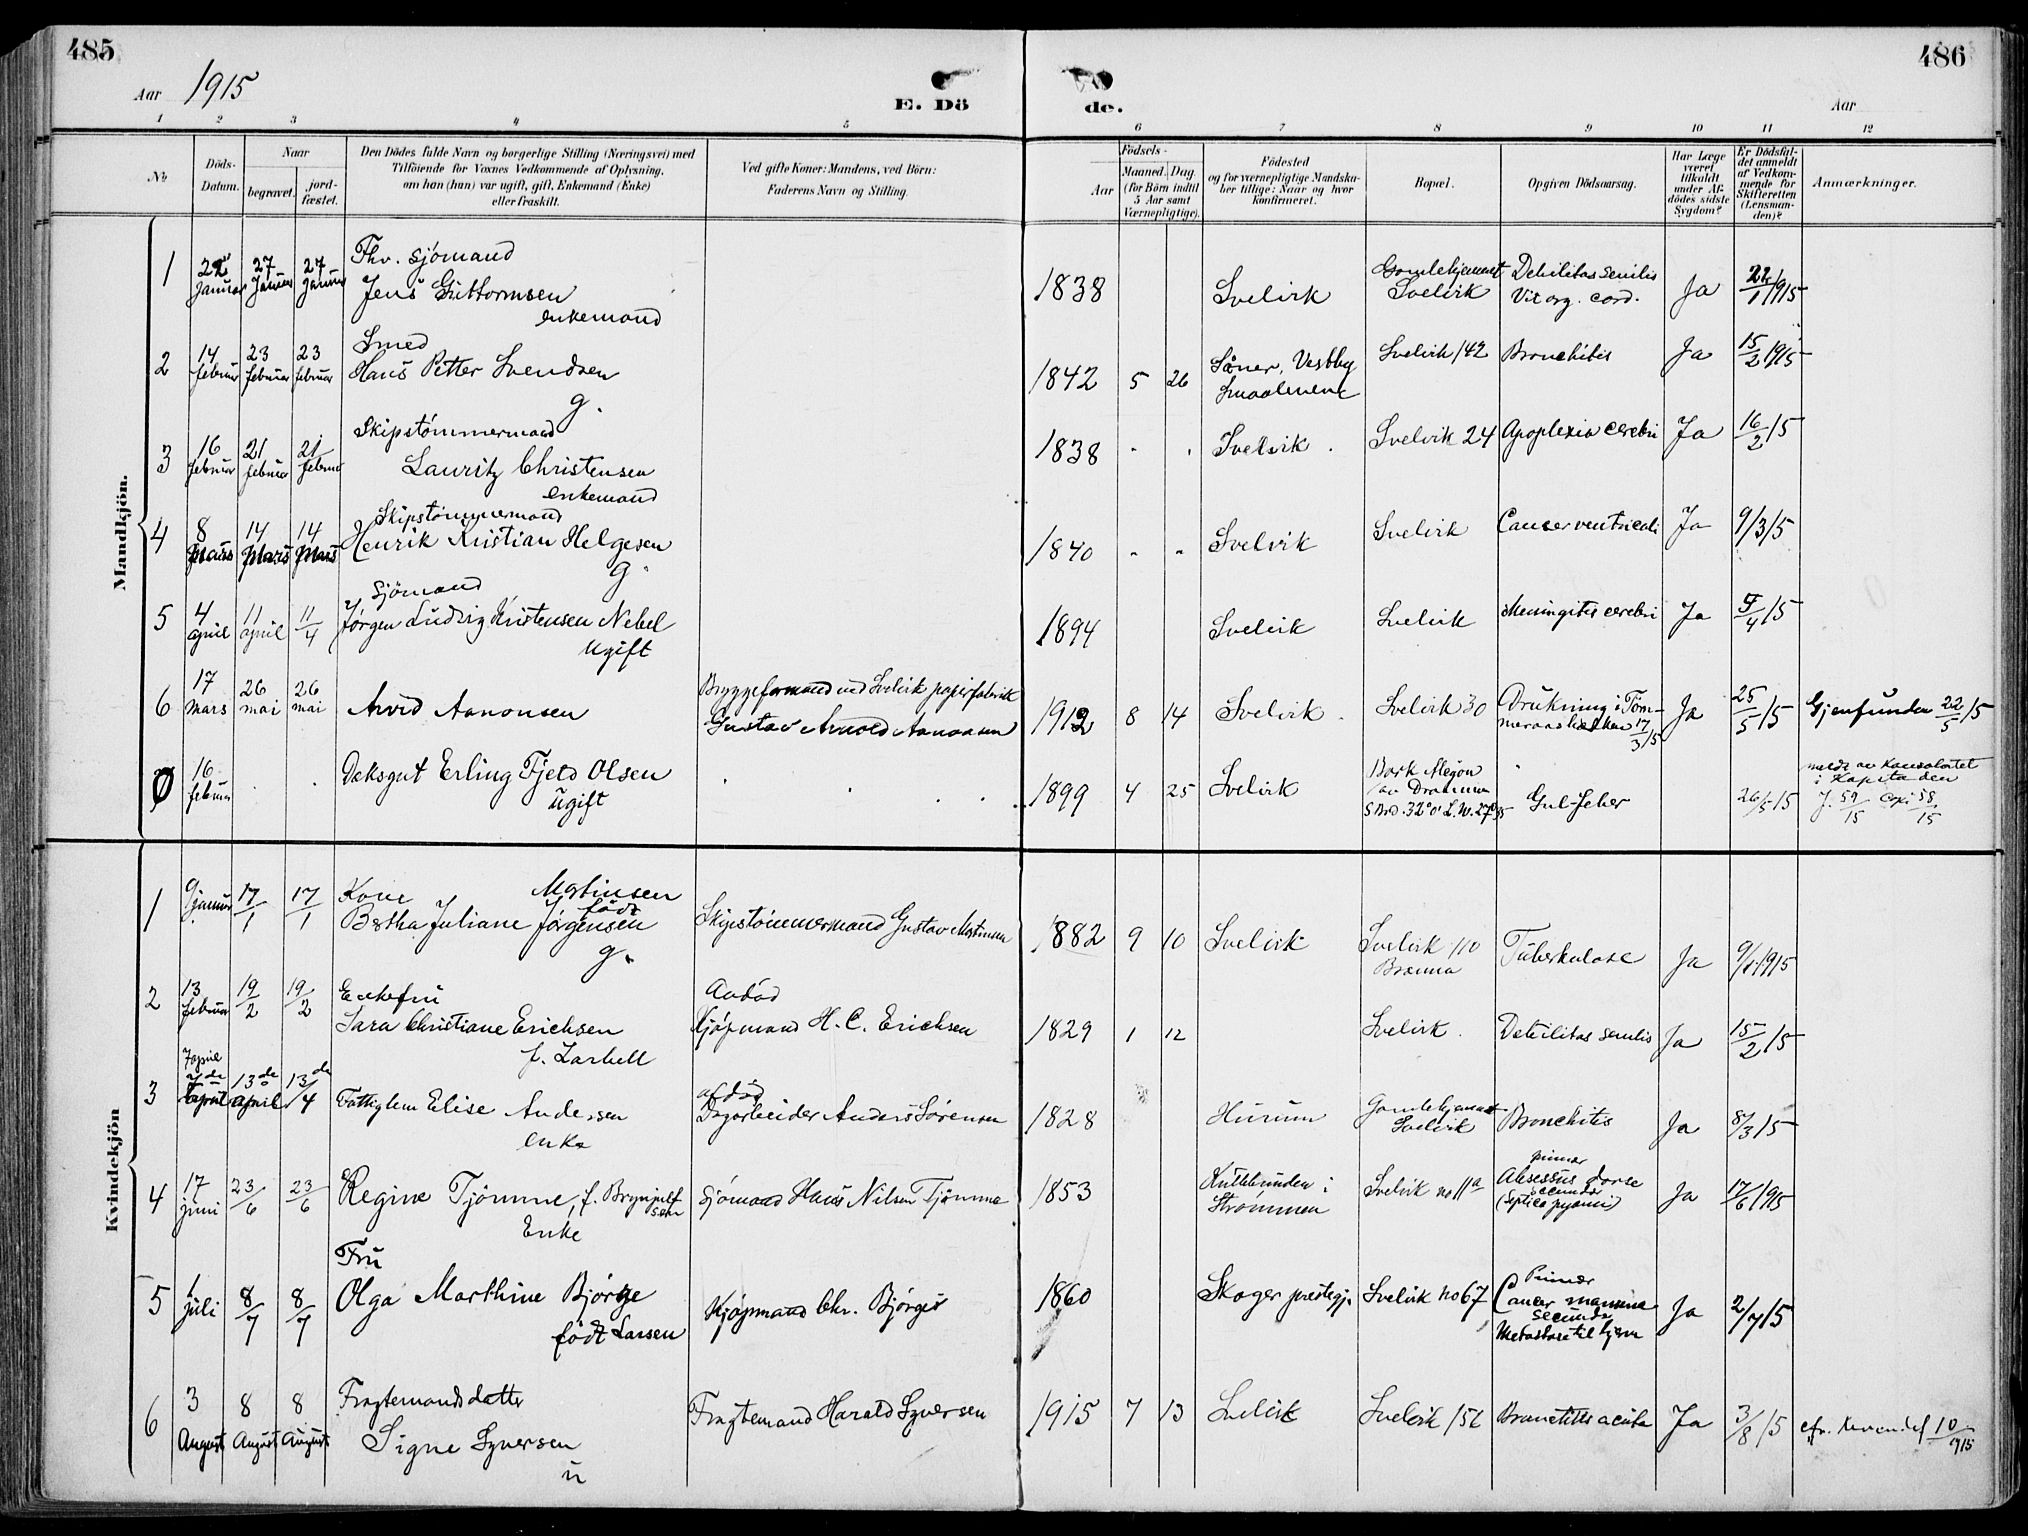 485
486
Aar 1915
E. Dö de.
Aar
1 2 3 4 5 6 7 8 9 10 11 12
No
Döds-Datum.
Naar
begravet.
jord-fæstet.
Den Dödes fulde Navn og borgerlige Stilling (Næringsvei) med
Tilföiende for Voxnes Vedkommende af Oplysning,
om han (hun) var ugift, gift, Enkemand (Enke)
eller fraskilt.
Ved gifte Koner: Mandens, ved Börn:
Faderens Navn og Stilling.
Födsels-
Aar
Maaned. Dag
(for Börn indtil
5 Aar samt
Værnepligtige).
Födested
og for værnepligtige Mandska-
ber tillige: Naar og hvor
konfirmeret.
Bopæl.
Opgiven Dödsaarsag.
Har Læge
været
tilkaldt
under Af-
dödes sidste
Sygdom?
Er Dödsfal-
det anmeldt
af Vedkom-
mende for
Skifteretten
(Lensman-
den)?
Anmærkninger.
Mandkjön.
1 22 Januar 27 Januar 27 Januar Fhv. sjömand
Jens Guttormsen
enkemand
1838 Svelvik Gamlehjemmet Svelvik Debilitas senilis Vit. org. cord. Ja 1915
2 14 februar 23 februar 23 februar Smed
Hans Petter Svendsen
g.
1842 5 26 Såner, Vestby Smaalenene Svelvik 142 Bronchitis Ja 15/2 1915
3 16 februar 21 februar 21 februar Skipstømmermand
Lauritz Christensen
enkemand
1838 Svelvik Svelvik 24 Apoplexia cerebri Ja 16/2 15
4 8 Mars 14 Mars 14 Mars Skipstømmermand
Henrik Kristian Helgesen
g.
1840 " " Svelvik Svelvik Cancer ventriculi Ja 9/3 15
5 4 april 11 april 11/4 Sjömand
Jörgen Ludvig Kristensen Nebel
ugift
1894 Svelvik Svelvik Meningitis cerebri Ja 5/4 15
6 17 mars 26 mai 26 mai Arvid Aanonsen
Bryggeformand ved Svelvik papirfabrik
Gustav Arnold Aanonsen
1912 8 14 Svelvik Svelvik 30 Drukning i Töm- 17/3 15 Ja 25/5 15 Gjenfunden 22/5 15
0 16 februar Deksgut Erling Fjeld Olsen
ugift
1899 4 25 Svelvik Bark av Drammen Gul-feber 15 av Konsulatet
i den
J. 59/15 58/15
Kvindekjön
1 9 januar 17/1 17/1 Kone Martinsen
född
Bertha Juliane Jørgensen
g.
Skipstömmermand Gustav Martinsen
1882 9 10 Svelvik Svelvik 110 Tuberkulose Ja 9/1 1915
2 13 februar 19/2 19/2 Enkefru
Sara Christiane Erichsen
f. Zarbell
Avdöd
Kjöpmand H. C. Erichsen
1829 1 12 Svelvik Debilitas senilis Ja 15/2 15
3 7 april 7de april 13de april 13de/4 Fattiglem Elise Andersen
enke
afdöd
Dagarbeider Anders Sörensen
1828 Hurum Gamlehjemmet Svelvik Bronchitis Ja 8/3 15
4 17 juni 23/6 23/6 Regine Tjömme, f. Brynjulfsen
Enke
Sjömand Hans Nilsen Tjömme
1853 i Strømmen Svelvik no 11a primær
Absessus dorse
secundær
Ja 17/6 1915
5 1 juli 8/7 8/7 Fru
Olga Marthine Bjørge
född Larsen
Kjøpmand Chr. Bjørge
1860 Skoger prestegj. Svelvik no 67 Primær
Cancer mamma
Secundær
Metastase til hjern
Ja 2/7 15
6 3 August 8 August 8 August Fragtemandsdatter
Signe Syversen
u
Fragtemand Harald Syversen
1915 7 13 Svelvik Svelvik 156 acuta Ja 3/8 15 cfr. 10/1915